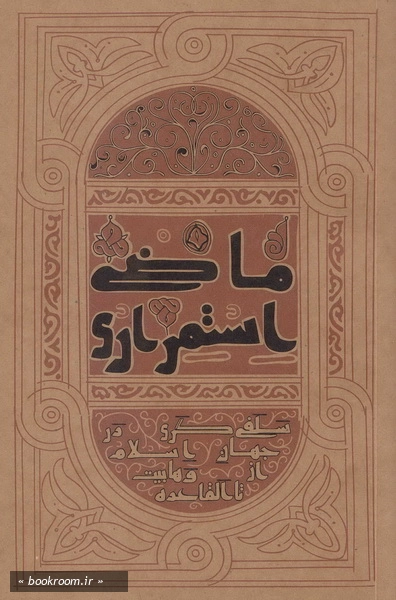 ماضی
استمراری
سلفی گری در
جهان اسلام
از وهابیت
تا القاعده
« bookroom.ir »